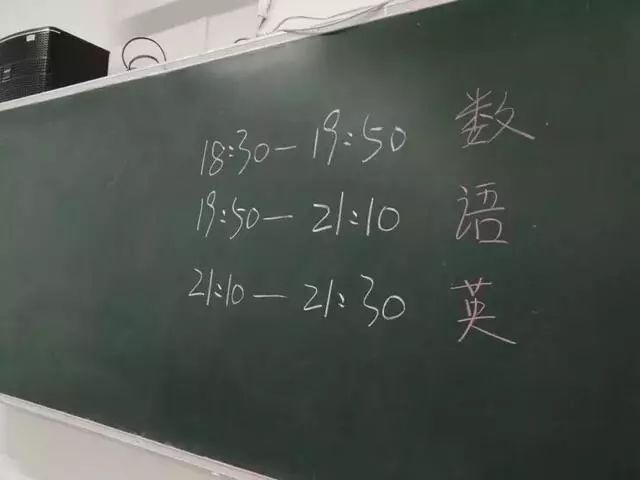 18:30—19:50 数
19:50—21:10 语
21:10—21:30 英